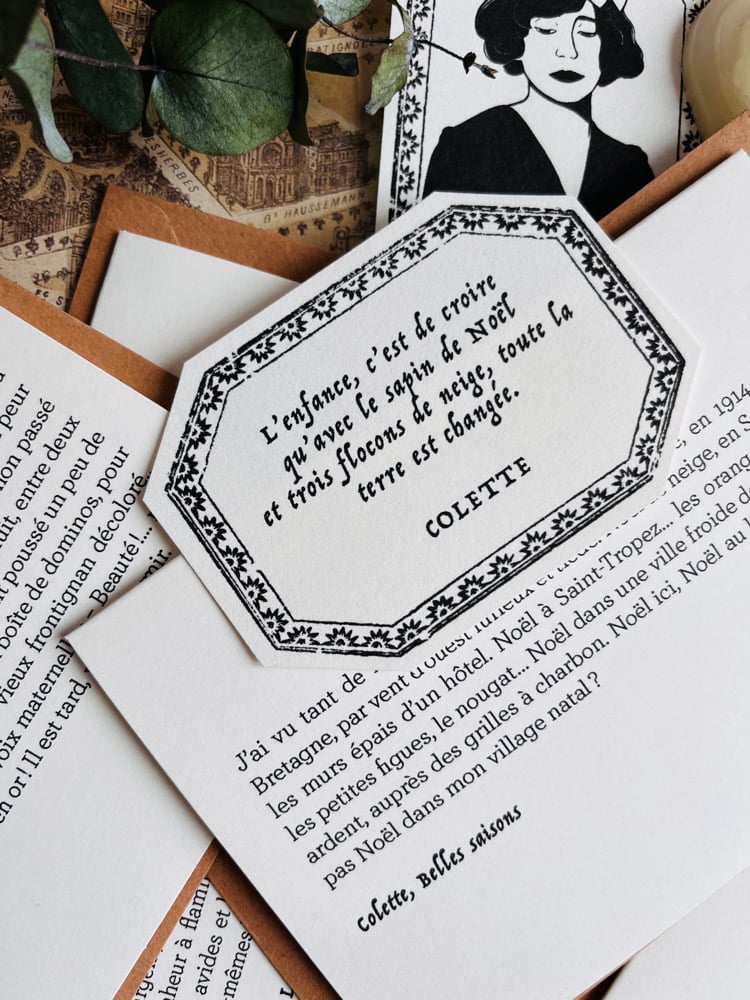 ATIGNOLL
ESHERBES
Bᵈ HAUSSEMANN
L'enfance, c'est de croire
qu'avec le sapin de Noël
et trois flocons de neige, toute la
terre est changée.
COLETTE
peur
mon passé
uit, entre deux
poussé un peu de
boîte de dominos, pour
vieux frontignan décoloré
Beauté!...
voix maternel
en or! Il est tard,
en 1914
J'ai vu tant de neige, en S
Bretagne, par vent d'ouest fumeux et
les murs épais d'un hôtel. Noël à Saint-Tropez... les orang
les petites figues, le nougat... Noël dans une ville froide d
ardent, auprès des grilles à charbon. Noël ici, Noël au
pas Noël dans mon village natal?
Colette, Belles saisons
à flamb
avides et
mêmes